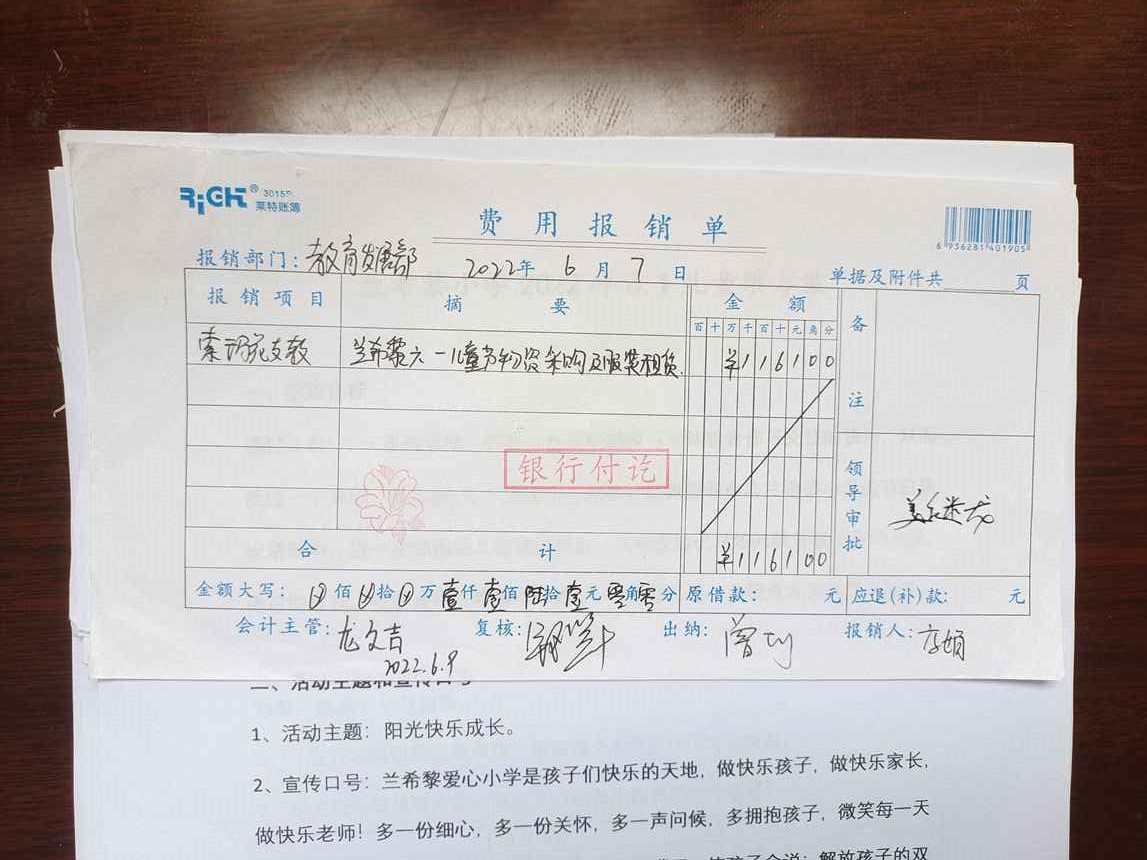 RiGHT® 3015
莱特账簿
费用报销单
6 936281 401905
报销部门：教育发展部 2022年 6月 7日 单据及附件共 页
报销项目 摘要 金额 备注
百十万千百十元角分
兰希黎六一儿童节物资采购及服装租赁 ¥116100
银行付讫
领导审批
合计 ¥116100
金额大写： 佰 拾 万 壹仟 壹佰 陆拾 壹元 零角 零分 原借款： 元 应退(补)款： 元
会计主管：龙文吉 复核： 出纳： 报销人：
2022.6.9
二、活动主题和宣传口号
1、活动主题：阳光快乐成长。
2、宣传口号：兰希黎爱心小学是孩子们快乐的天地，做快乐孩子，做快乐家长，
做快乐老师！多一份细心，多一份关怀，多一声问候，多拥抱孩子，微笑每一天
解放孩子的双